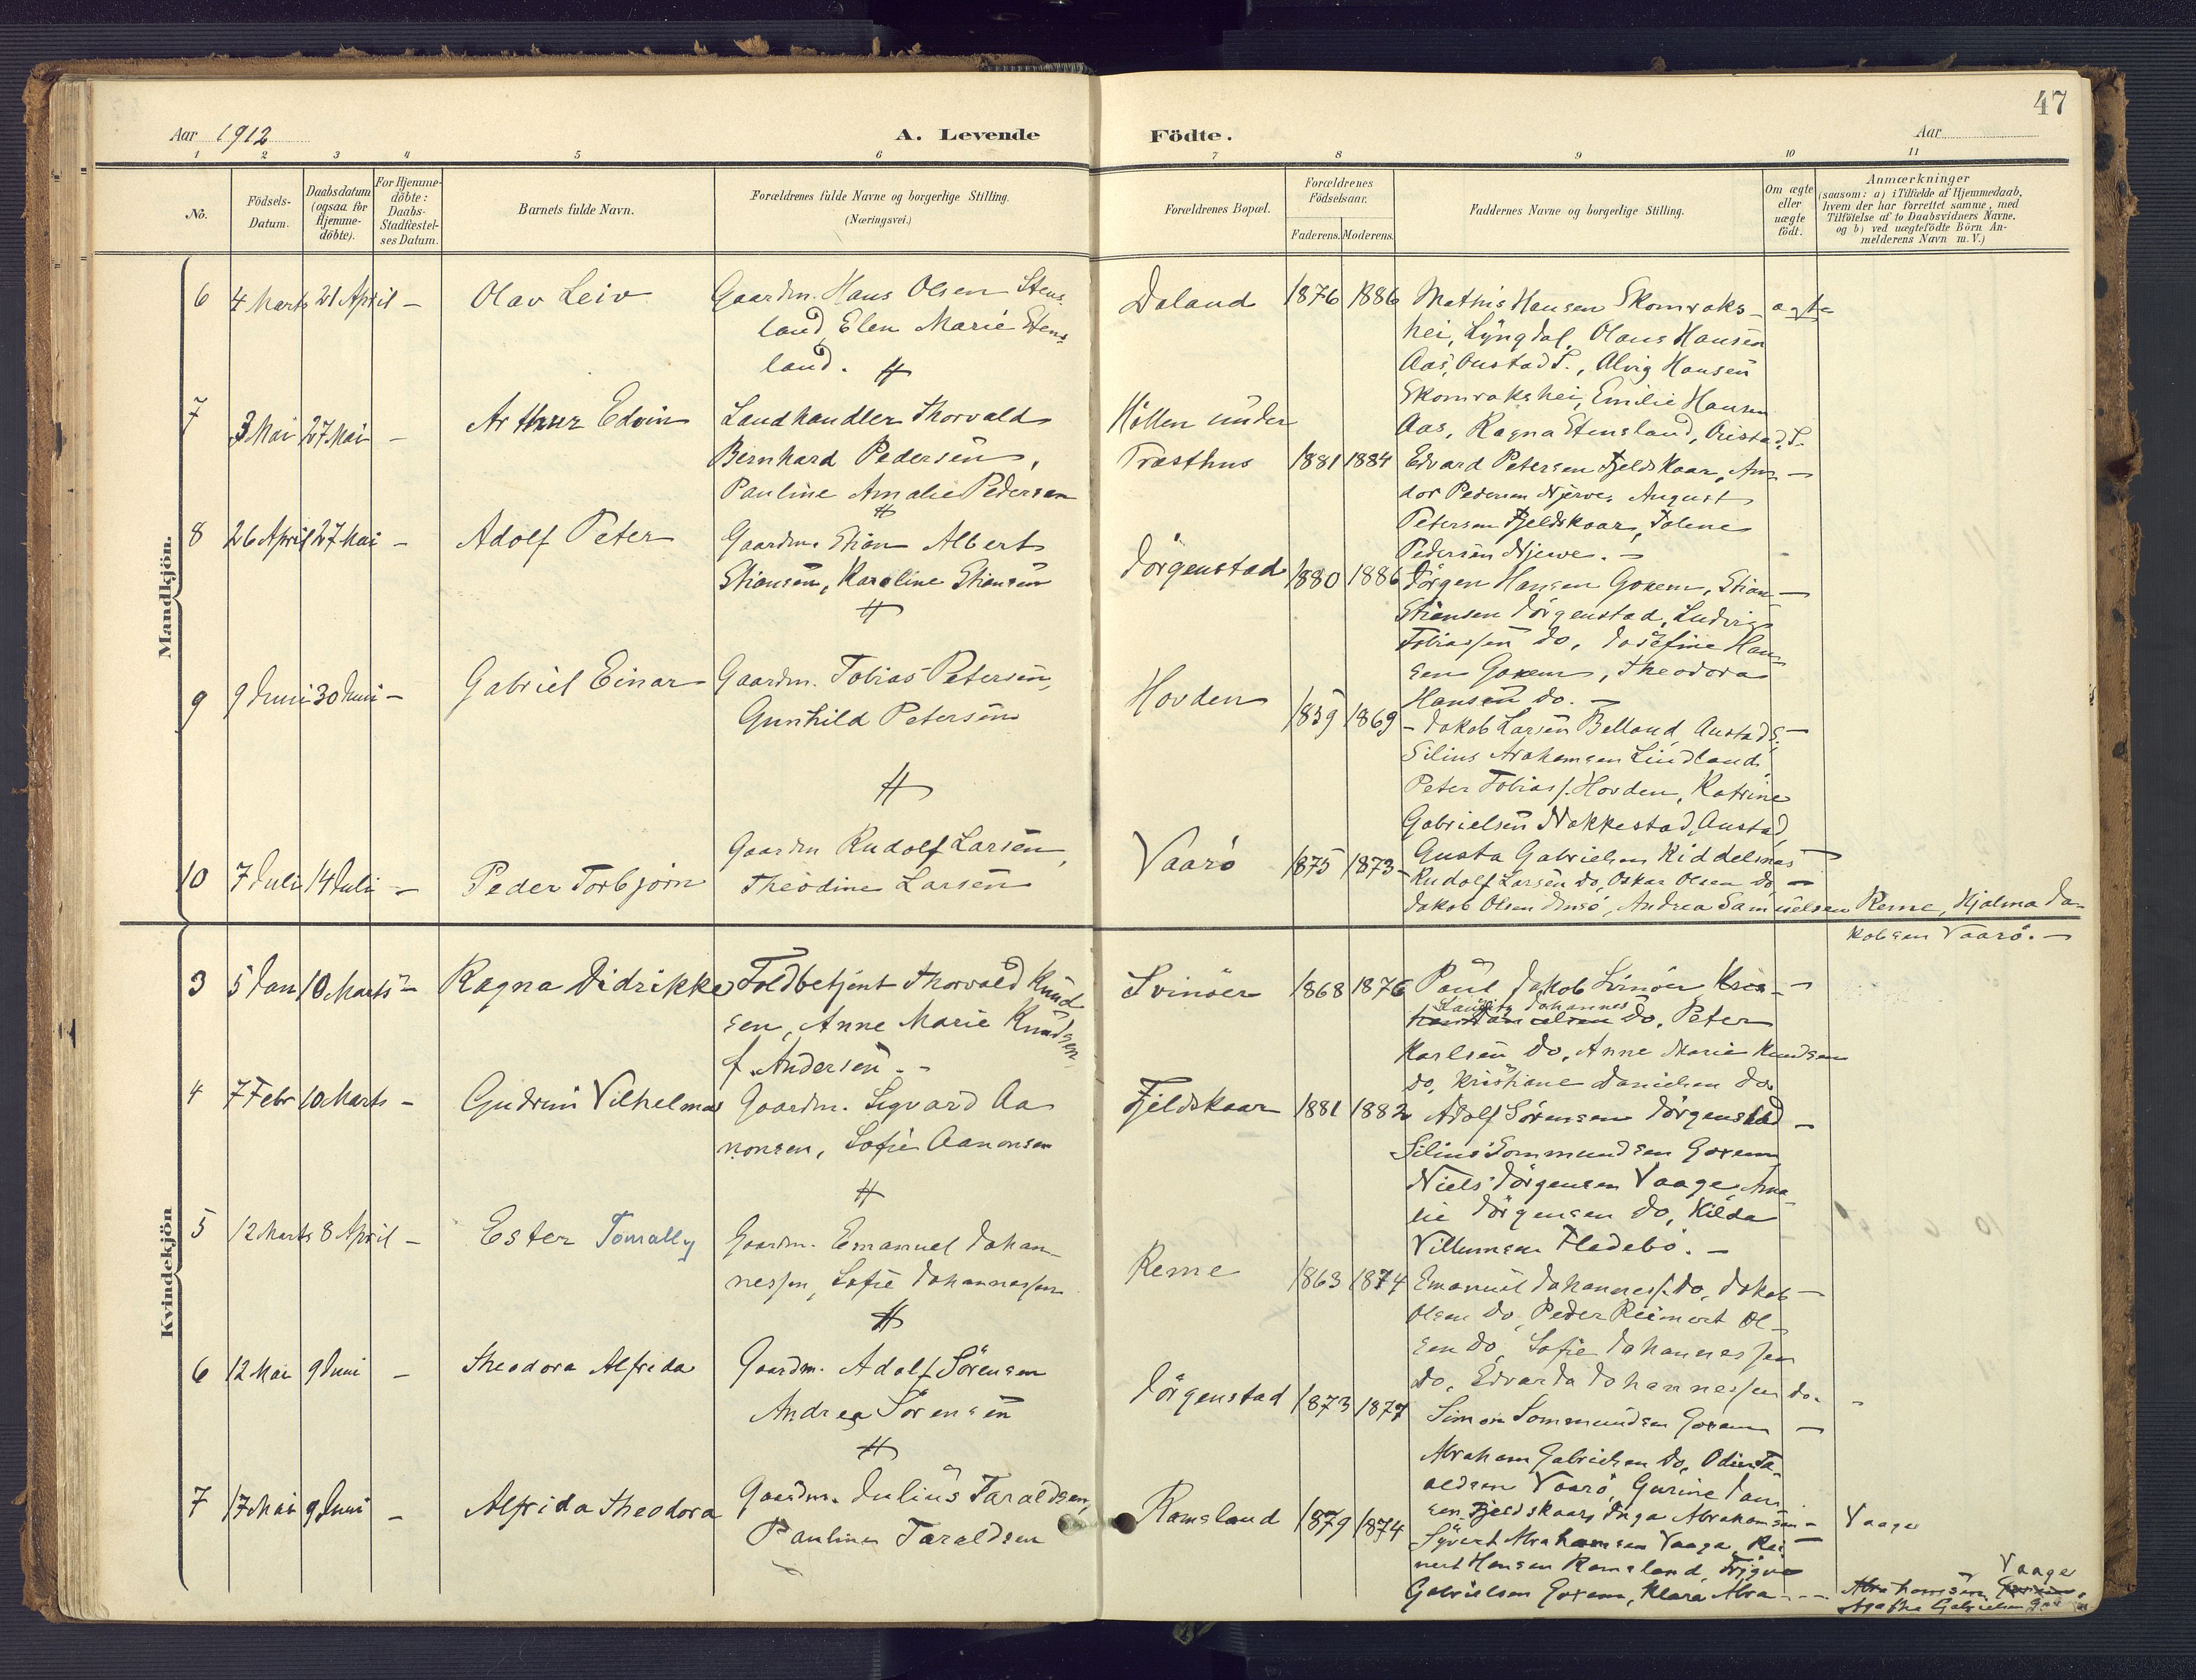 47
Aar 1912
A. Levende
Födte.
Aar
1 2 3 4 5 6 7 8 9 10 11
No.
Födsels-
Datum.
Daabsdatum
(ogsaa for
Hjemme-
döbte).
For Hjemme-
döbte:
Daabs-
Stadfæstel-
ses Datum.
Barnets fulde Navn.
Forældrenes fulde Navne og borgerlige Stilling.
(Næringsvei.)
Forældrenes Bopæl.
Forældrenes
Födselsaar.
Faderens. Moderens.
Faddernes Navne og borgerlige Stilling.
Om ægte
eller
uægte
födt.
Anmærkninger
(saasom: a) i Tilfælde af Hjemmedaab,
hvem der har forrettet samme, med
Tilföielse af to Daabsvidners Navne.
og b) ved uægtefödte Börn An-
melderens Navn m. V.)
Mandkjön.
6 4 Marts 21 April - Olav Leiv
Gaardm. Hans Olsen Stens-
land, Elen Marie Stens-
land.
Daland 1876 1886
Mathis Hansen Skomraks-
hei, Lyngdal, Olaus Hansen
Aas, Austad S., Alvig Hansen
Skomrakshei, Emilie Hansen
Aas, Ragna Stensland, Austad S.
ægte
7 3 Mai 27 Mai - Arthur Edvin
Landhandler Thorvald
Bernhard Pedersen,
Pauline Amalie Pedersen
Höllen under
Træsthus 1881 1884
Edvard Petersen Fjeldskaar, Am-
dor Pedersen Njerve, August
Petersen Fjeldskaar, Tolene
Pedersen Njerve. -
8 26 April 27 Mai - Adolf Peter
Gaardm. Stian Albert
Stiansen, Karoline Stiansen
Jörgenstad 1880 1886
Jörgen Hansen Goxem, Stian
Stiansen Jörgenstad, Ludvig
Tobiassen do, Josefine Han-
sen Goxem, Theodora
Hansen do. -
9 9 Juni 30 Juni - Gabriel Einar
Gaardm. Tobias Petersen,
Gunhild Petersen
Hovden 1859 1869
- Jakob Larsen Belland Austad S.,
Silius Arahamsen Lindland,
Peter Tobiass. Hovden, Katrine
Gabrielsen Nakkestad, Austad,
Gusta Gabrielsen Kiddelsnes
10 7 Juli 14 Juli - Peder Torbjörn
Gaardm Rudolf Larsen,
Theodine Larsen
Vaarö 1875 1873
Rudolf Larsen do, Oskar Olsen do,
Jakob Olsen Imsö, Andrea Samuelsen Reme, Hjalma Ja-
kobsen Vaarö. -
Kvindekjön
3 5 Jan 10 Marts - Ragna Didrikke
Toldbetjent Thorvald Knud-
sen, Anne Marie Knudsen
f. Andersen. -
Svinöer 1868 1876
Paul Jakob Svinöer
Lauritz Johannes
do, Peter
Karlsen do, Anne Marie Knudsen
do, Kristiane Danielsen do.
4 7 Febr 10 Marts - Gudrun Vilhelma
Gaardm. Sigvard Aa-
nonsen, Sofie Aanonsen
Fjeldskaar 1881 1882
Adolf Sörensen Jörgenstad
Silius Sommundsen Goxem
Niels Jörgensen Vaage, Ama-
lie Jörgensen do, Hilda
Villumsen Fladebö. -
5 12 Marts 8 April - Ester Tomally
Gaardm. Emanuel Johan-
nessen, Sofie Johannessen
Reme 1863 1874
Emanuel Johanness. do, Jakob
Olsen do, Peder Reimert Ol-
sen do, Sofie Johannessen
do, Edvarda Johannessen do.
6 12 Mai 9 Juni - Theodora Alfrida
Gaardm. Adolf Sörensen
Andrea Sörensen
Jörgenstad 1873 1877
Simon Sommundsen Goxem
Abraham Gabrielsen do, Odin Ta-
raldsen Vaarö, Gurine Jan-
sen Fjeldskaar, Inga Abrahamsen - Vaage
7 17 Mai 9 Juni - Alfrida Theodora
Gaardm. Julius Taraldsen,
Pauline Taraldsen
Ramsland 1879 1874
Syvert Abrahamsen Vaage, Rei-
nert Hansen Ramsland, Trygve
Gabrielsen Goxem, Klara Abra-
hamsen Vaage
Agathe Gabrielsen